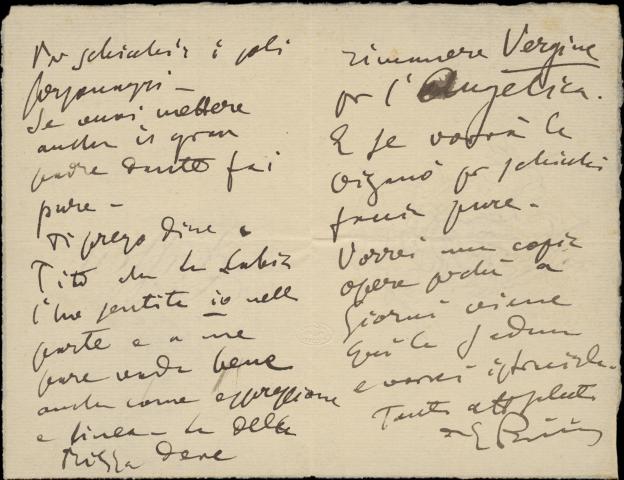 Per schicchi i soli
personaggi –
Se vuoi mettere
anche il gran
padre Dante fai
pure –
Ti prego dire a
Tito che la Labia
l'ho sentita io nella
parte e a me
pare vada bene
anche come espressione
e linea – La Della
Rizza deve
rimanere Vergine
per l'Angelica.
E se vorrà la
per schicchi
faccia pure –
Vorrei una copia
opere perché a
Giorni viene
qui la
e vorrei istruirla –
Tanti aff saluti